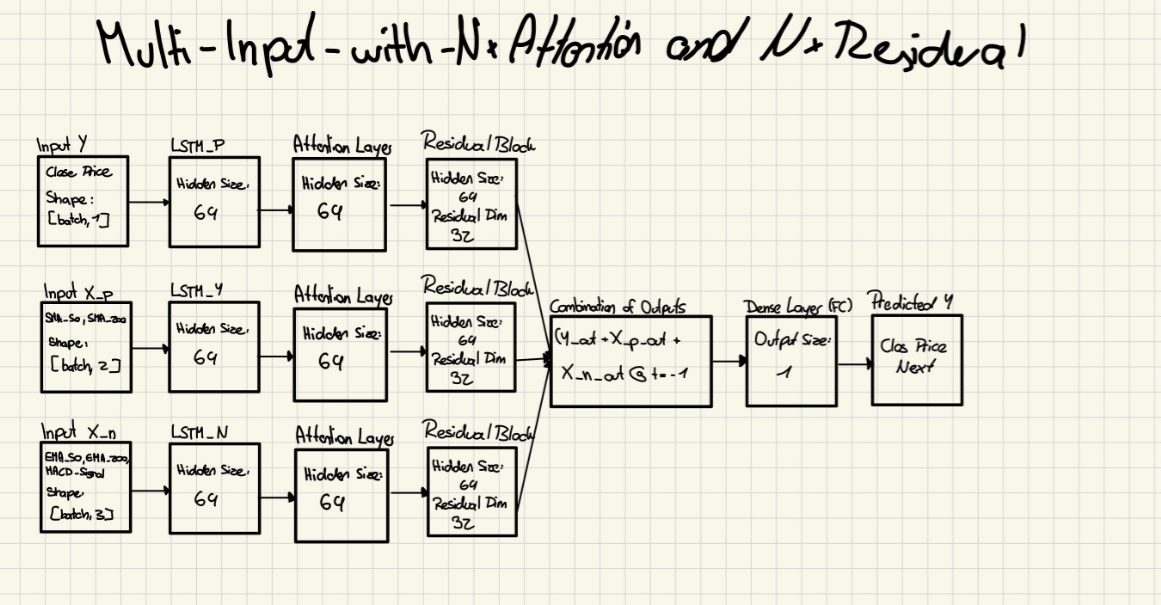 Multi-Input-with-Nx Attention and Nx Residual
Input Y
Close Price
Shape:
[batch, 1]
LSTM_P
Hidden Size:
64
Attention Layer
Hidden Size:
64
Residual Block
Hidden Size:
64
Residual Dim
32
Input X_p
SMA_50, SMA_200
Shape:
[batch, 2]
LSTM_Y
Hidden Size:
64
Attention Layer
Hidden Size:
64
Residual Block
Hidden Size:
64
Residual Dim
32
Input X_n
EMA_50, EMA_200,
MACD-Signal
Shape:
[batch, 3]
LSTM_N
Hidden Size:
64
Attention Layer
Hidden Size:
64
Residual Block
Hidden Size:
64
Residual Dim
32
Combination of Outputs
(Y_out + X_p_out +
X_n_out @ t=-1
Dense Layer (FC)
Output Size:
1
Predicted Y
Clos Price
Next